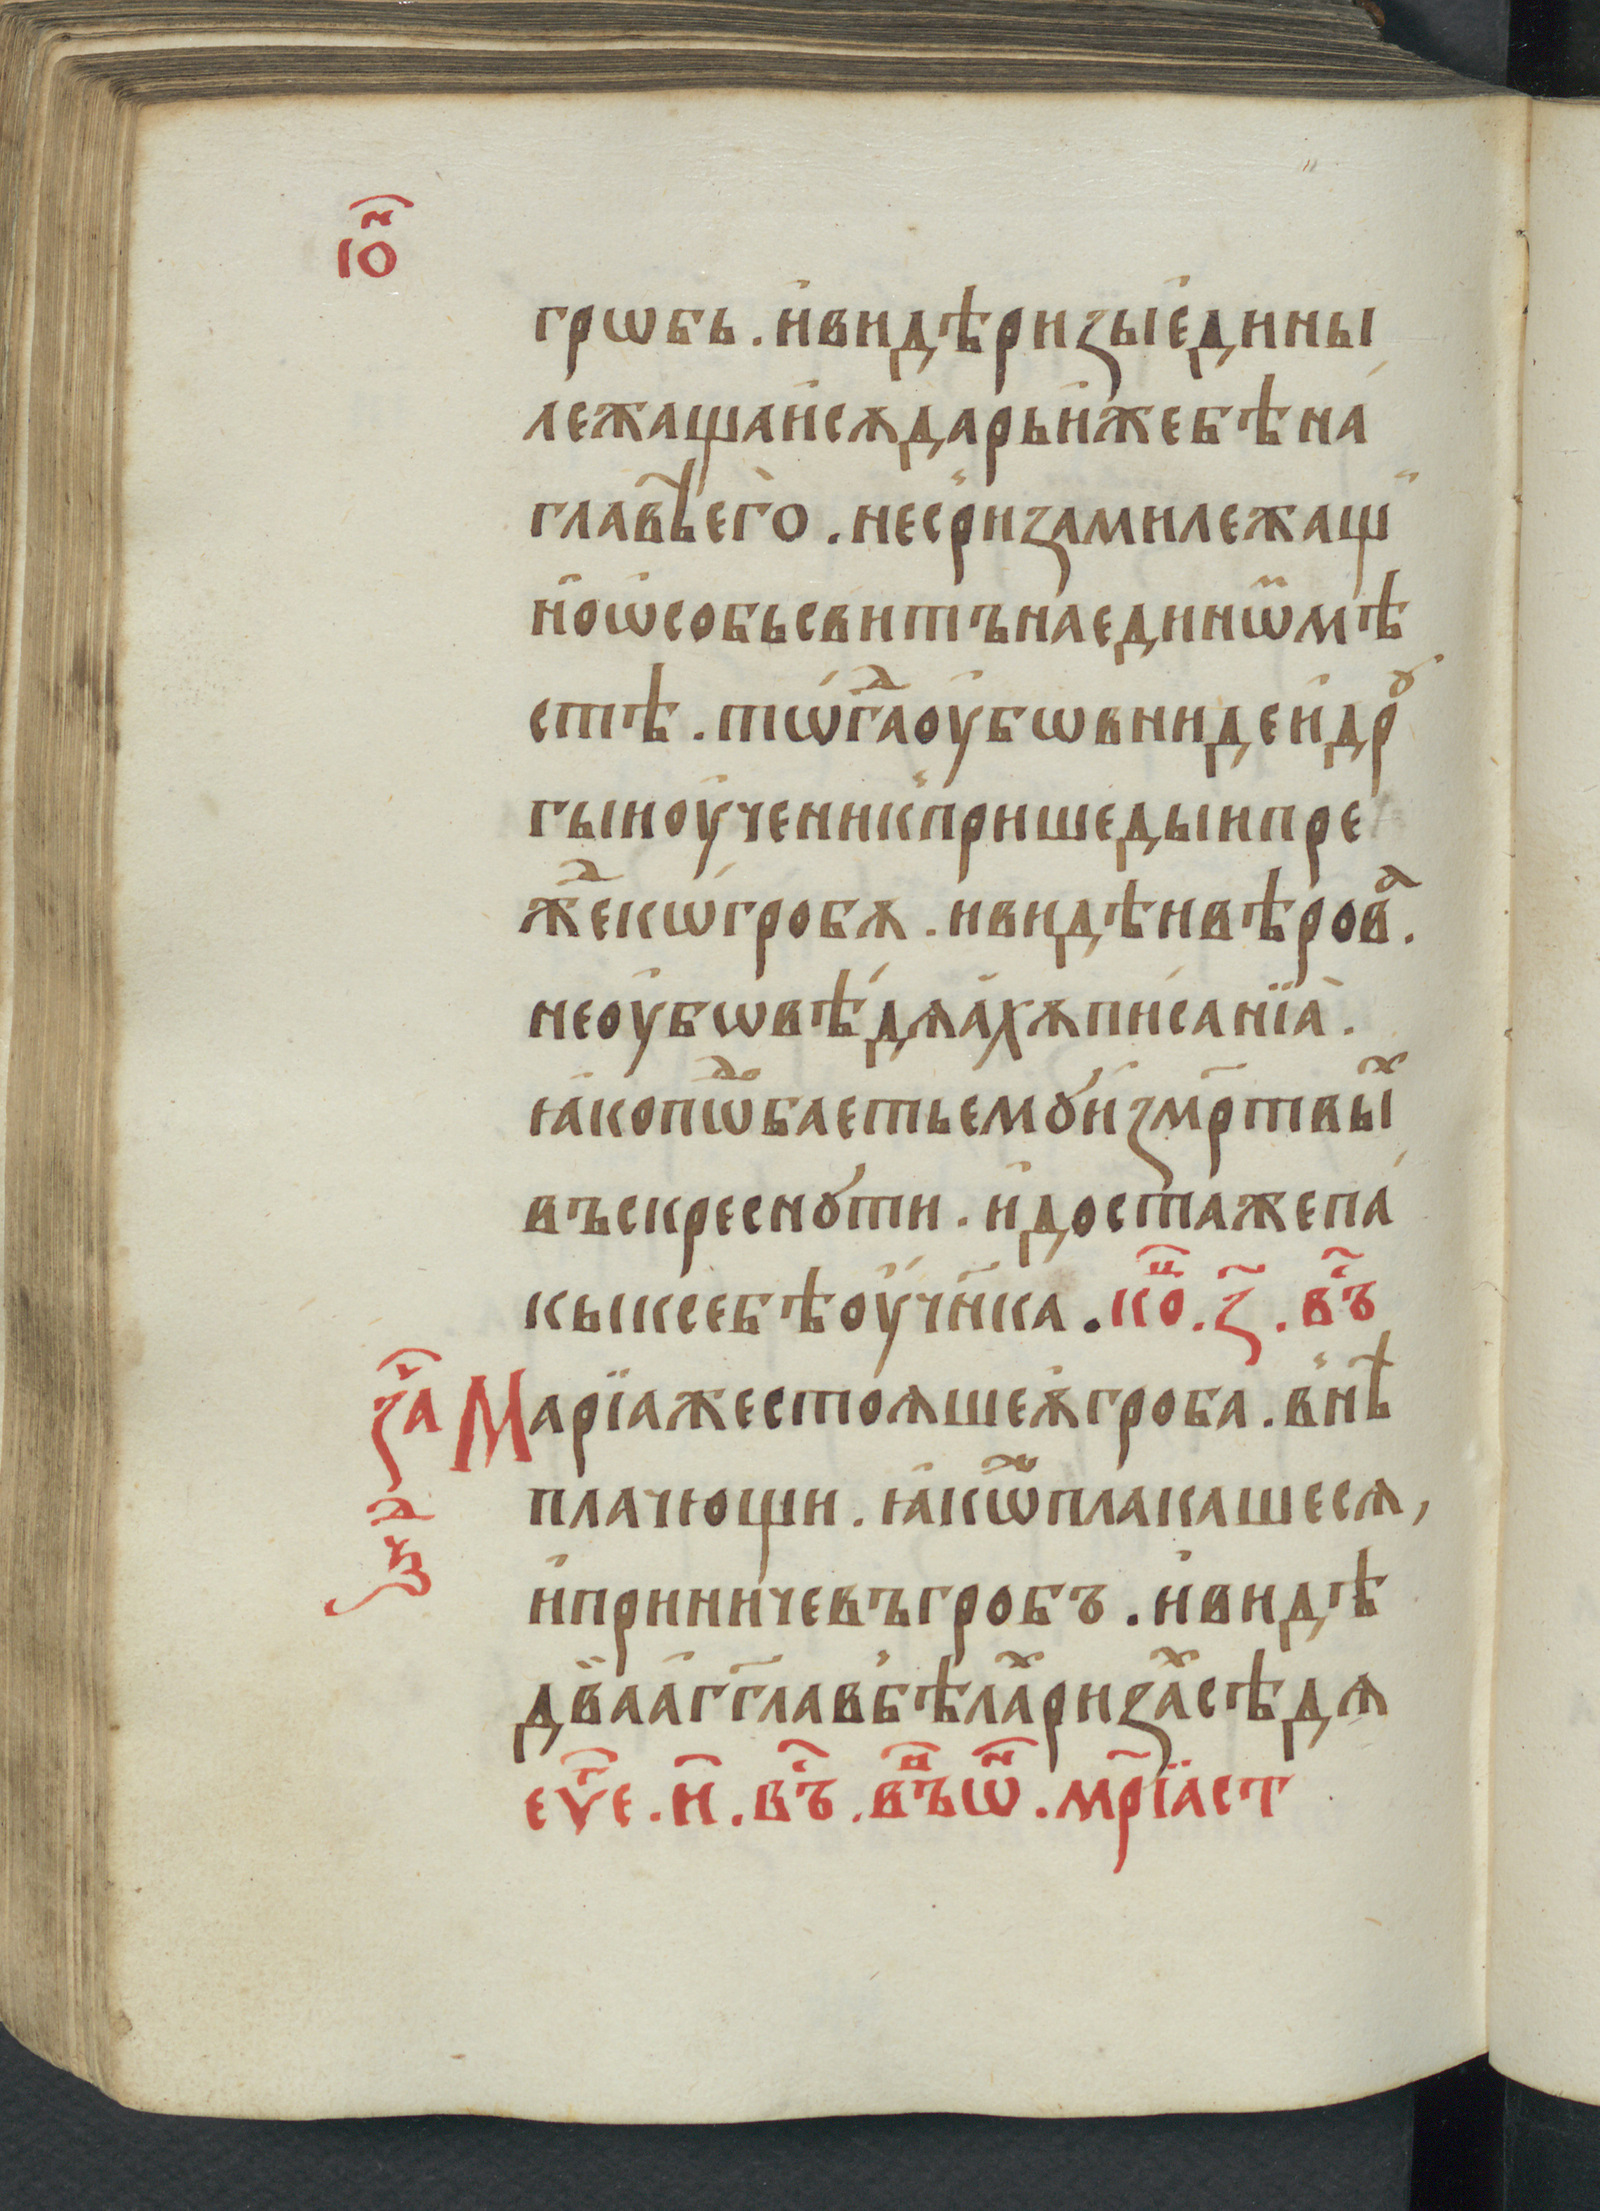 іѡ҃н
грѡбь . и҆видѣризыедины
лежащаи҆сѫдарьи҆жебѣна́
главѣ̾е҆го̀ . нес̾ризамилежащ̾
но҆ѡ҆собьсвитънаединѡ҆мѣ
стѣ . тѡ́гⷣао҆убѡвнидеи҆дрꙋ
гыио҆ученик̾пришедыипре
жⷣекѡ́гробѫ . ивидѣивѣровⷶ .
нео҆убѡвѣ́дѧа҆хѫпи́санїа̀ .
ꙗ҆копѡⷣбаетьемꙋ̀и҆змр҃твыⷯ
въскреснꙋти . и҆достажепа́
кыксебѣо҆уч҃нка . коⷰ҇ . з҃ . въⷭ҇
заⷱ҇ Марїажестоѧшеꙗ҆гроба . в̾нѣ̀
плачющи . ꙗ҆кѡⷤплакашесѧ ,
и҆приничевъгробъ . и҆видѣ
два̀а҆гг҃лав̾бѣлаⷯризаⷯсѣдѧ
еѵⷢ҇е . и҃ . въⷭ҇ . въⷩ҇ѡⷩ҇ . мр҃їаст